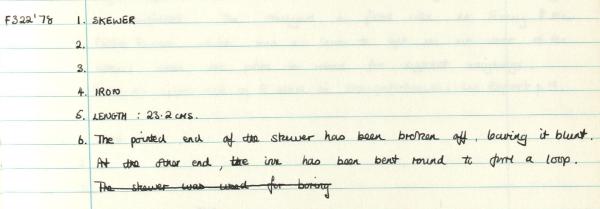 F322'78 1. SKEWER
2.
3.
4. IRON
5. LENGTH : 23.2 CMS.
6. The pointed end of the skewer has been broken off, leaving it blunt.
At the other end, the iron has been bent round to form a loop.
The skewer was used for boring